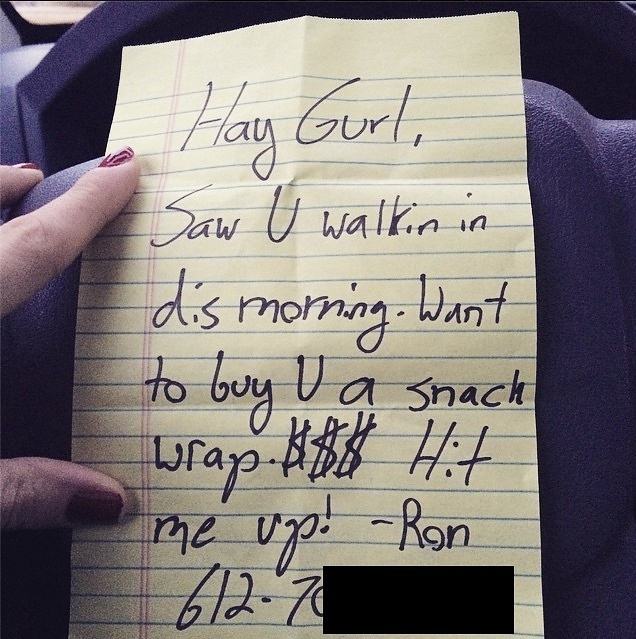 Hay Gurl,
Saw U walkin in
dis morning. Want
to buy U a snack
wrap. $$$ Hit
me up! -Ron
612-70